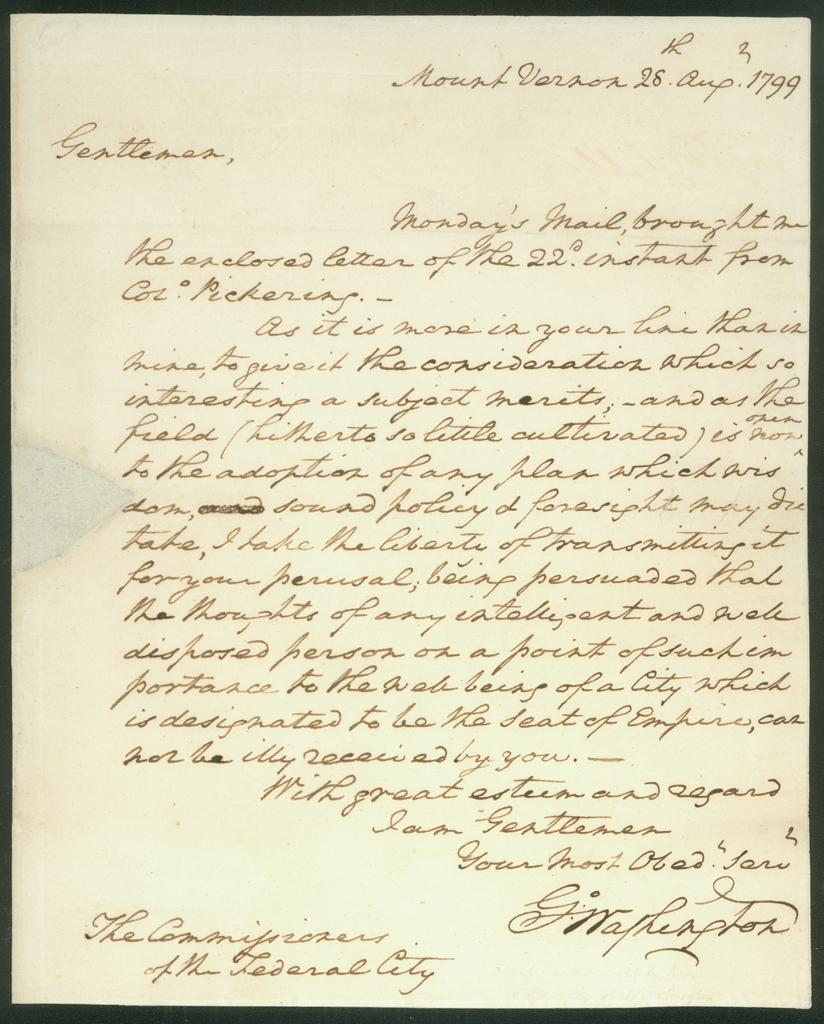 Mount Vernon 28th. Augt. 1799
Gentlemen,
Monday's Mail, brought me
the enclosed letter of the 22d. instant from
Colo. Pickering. –
As it is more in your line than in
mine, to give it the consideration which so
interesting a subject merits; – and as the
field (hitherto so little cultivated) is open now
to the adoption of any plan which wis
dom, and sound policy & foresight may dic
tate, I take the liberty of transmitting it
for your perusal; being persuaded that
the thoughts of any intelligent and well
disposed person on a point of such im
portance to the well being of a City which
is designated to be the Seat of Empire, can
not be illy received by you. —
With great esteem and regard
I am Gentlemen
Your Most Obedt. Servt
Go: Washington
The Commissioners
of the Federal City